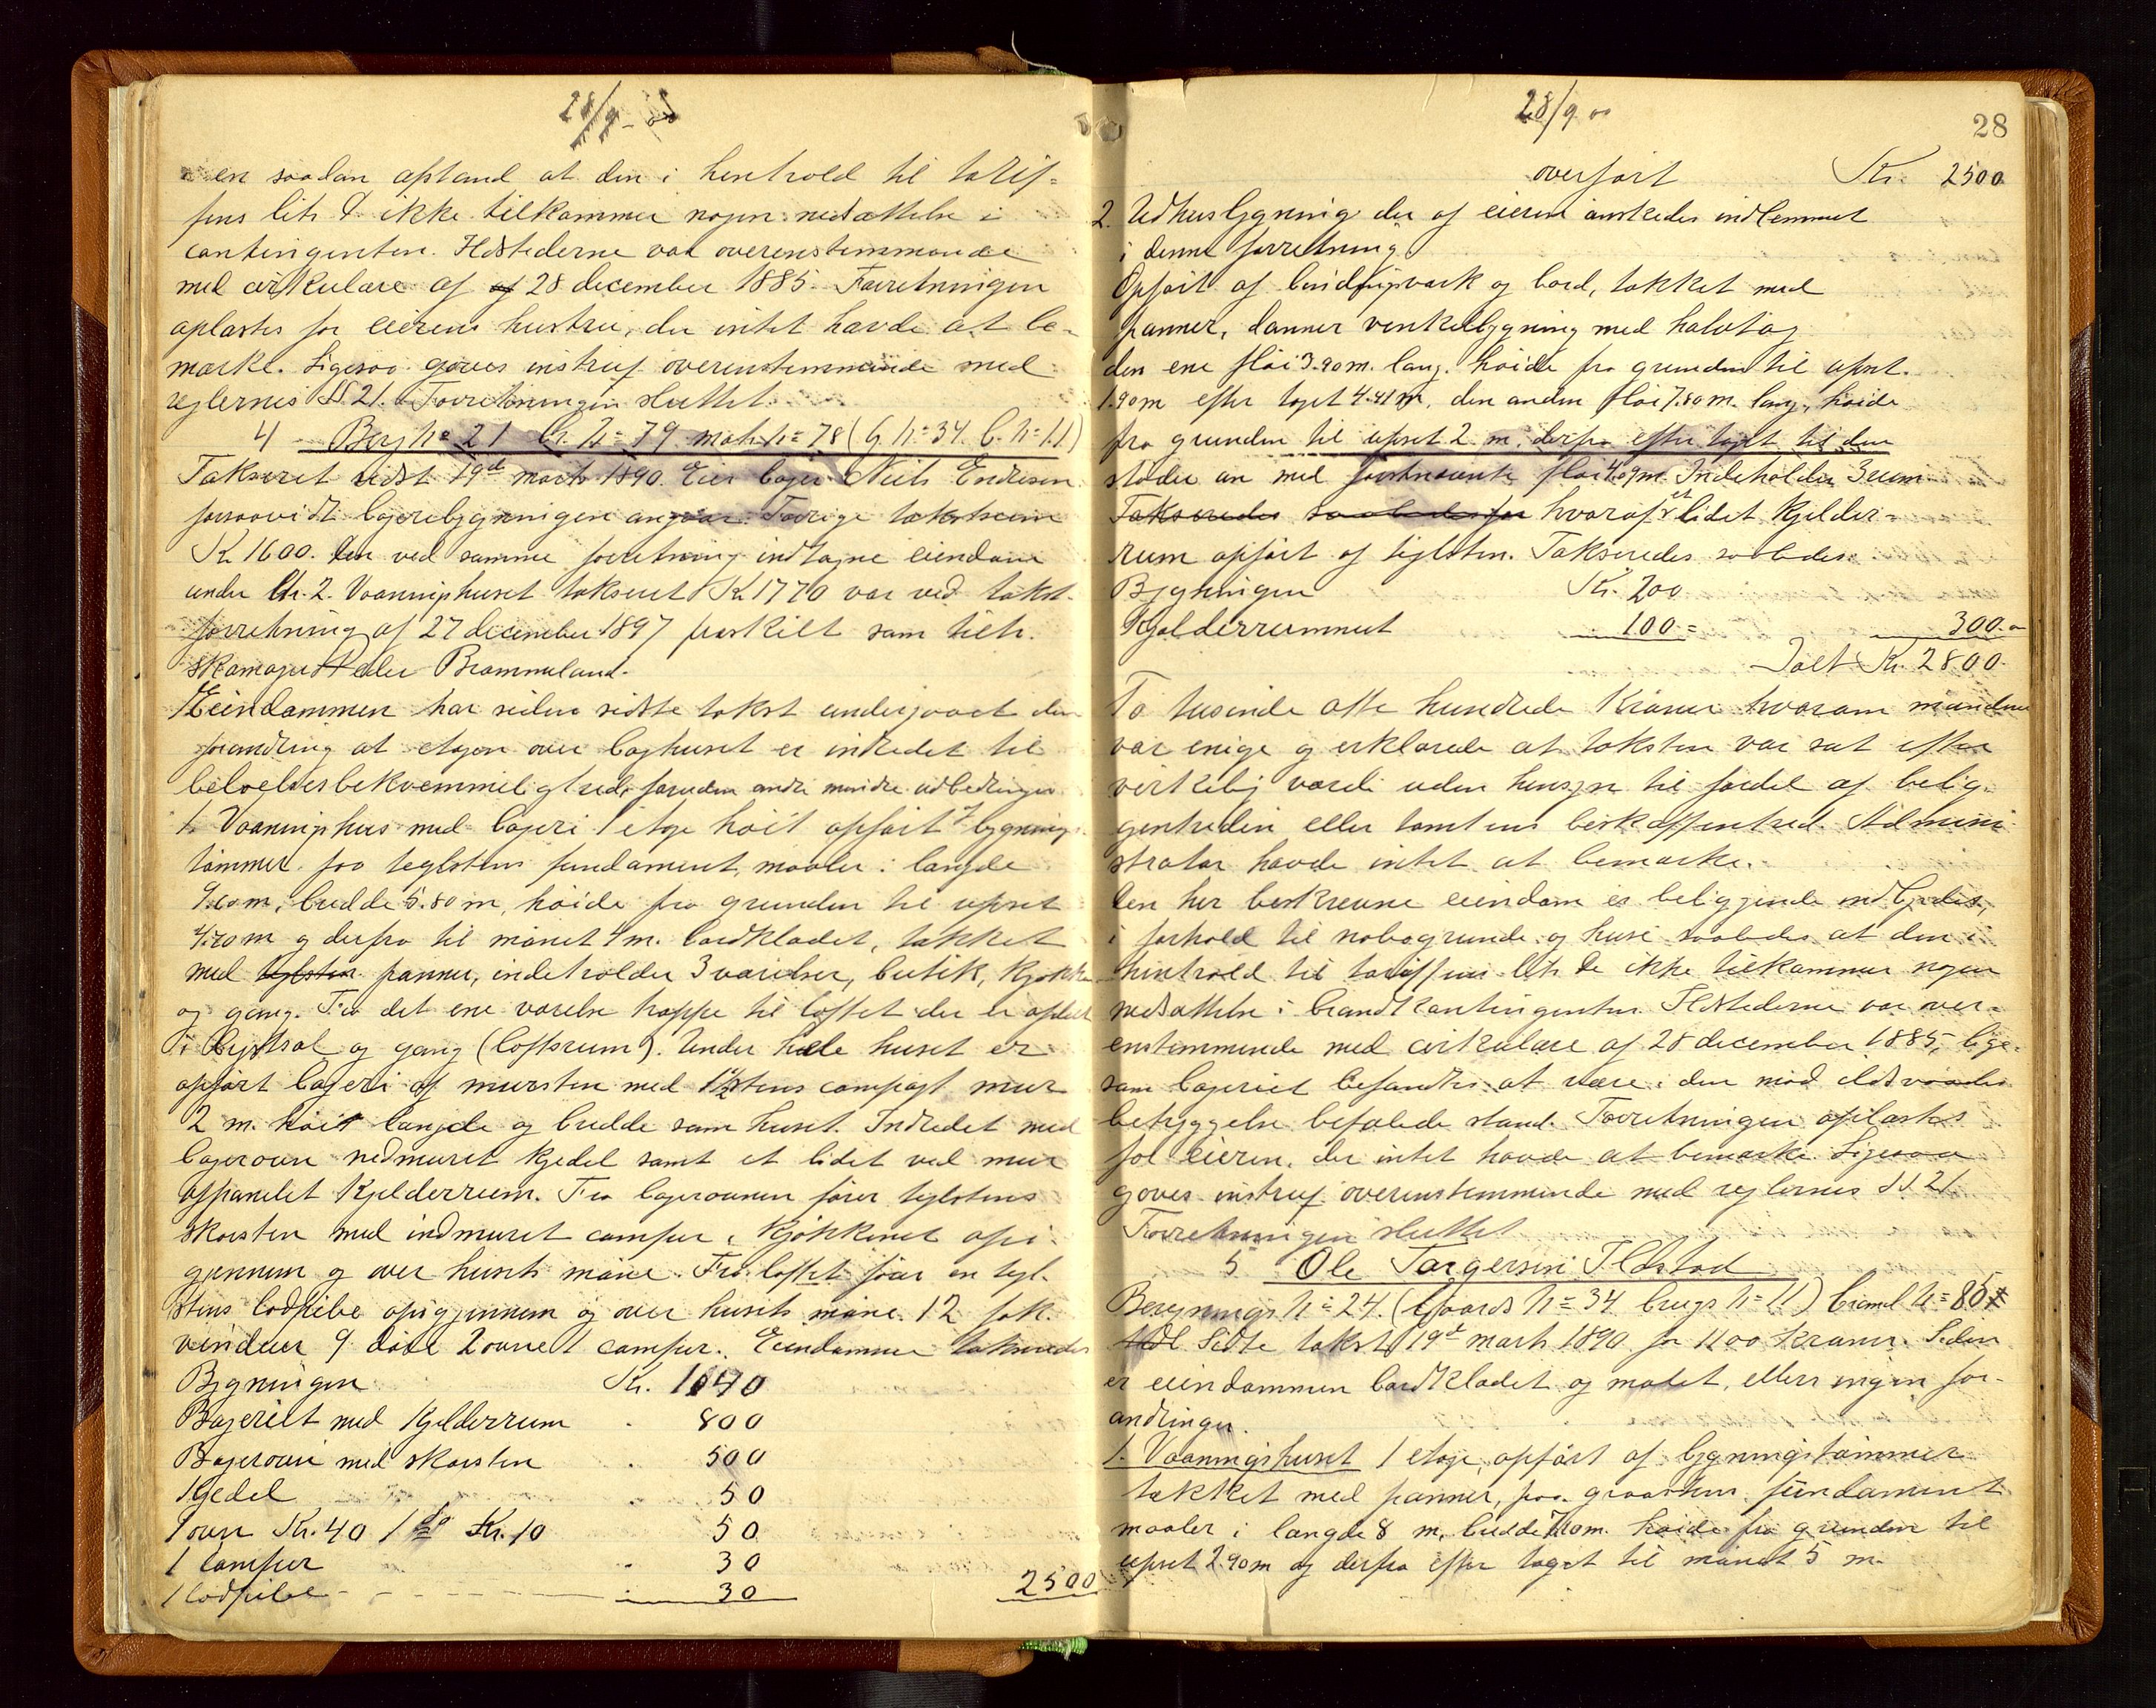 28/9 - 00
en saadan afstand at den i henhold til tarif-
fens lit. d ikke tilkommer nogen nedsættelse i
contingenten. Ildstederne var overenstemmende
med cirkulære af af 28 december 1885. Forretningen
oplæstes for eierens hustru, der intet havde at be-
mærke. Ligesaa gaves instrux overenstemmende med
reglernes §§ 21. Forretningen sluttet.
4 Berg No 21 Br. No 79 matr. No 78 (G. No 34 B. No 11)
Takseret sidst 19de marts 1890. Eier bager Niels Endresen
forsaavidt bageribygningen angaar. Forrige takstsum
Kr 1600. Den ved samme forretning indtagne eiendom
under Litr. 2. Vaaningshuset takseret Kr 1770 var ved takst-
forretning af 27 december 1897 fraskilt som tilh.
skomager Peder Brommeland.
Eiendommen har siden sidste takst undergaaet den
forandring at etagen over baghuset er indredet til
beboelsesbekvemmelighed, foruden andre mindre udbedringer
1. Vaaningshus med bageri 1 etage høit opført af bygning-
tømmer paa teglstens fundament, maaler i længde
9.60 m, bredde 5.80 m, høide fra grunden til opset
4.20 m og derfra til mønet 4 m. bordklædet, tækket
med teglsten panner, indeholder 3 værelser, butik, kjøkken
og gang. Fra det ene værelse trappe til loftet der er opdelt
i Bystsal og gang (loftsrum). Under hele huset er
opført bageri af mursten med 1½ stens compagt mur
2 m. høit længde og bredde som huset. Indredet med
bagerovn nedmuret kjedel samt et lidet ved mur
afpanelet Kjelderrum. Fra bagerovnen fører teglstens
skorsten med indmuret comfur i kjøkkenet op i-
gjennem og over husets møne. Fra loftet fører en tegl-
stens lodpibe opigjennem og over husets møne. 12 fak.
vinduer 9 døre 2 ovne 1 comfur. Eiendommen takseredes
Bygningen Kr. 1040
Bageriet med Kjelderrum " 800
Bagerovn med skorsten " 500
Kjedel " 50
1 ovn Kr. 40 1 do Kr. 10 50
1 comfur " 30
1 lodpibe - - - : 30 2500
28/9 00
28
overført Kr. 2500
2. Udhusbygning der af eieren ønskedes indlemmet
i denne forretning
Opført af bindingsværk og bord, tækket med
panner, danner vinkelbygning med halvtag
den ene fløi 3.90 m. lang. høide fra grunden til opset.
1.90 m efter taget 4.41 m, den anden fløi 7.80 m. lang, høide
fra grunden til opset 2 m, derfra efter taget til den
støder an med førstnævnte fløi 4.09 m. Indeholder 3 rum
Takseredes saaledes for hvoraf et lidet Kjelder-
rum opført af teglsten. Takseredes saaledes:
Bygningen Kr. 200
Kjelderrummet 100 = 300.-
Ialt Kr. 2800.
To tusinde otte hundrede Kroner hvorom mændene
var enige og erklærede at taksten var sat efter
virkelig værdi uden hensyn til fordel af belig-
genheden eller tomtens beskaffenhed. Admini-
strator havde intet at bemærke.
Den her beskrevne eiendom er beliggende indbyrdes,
i forhold til nabogrunde og huse saaledes at den i
henhold til tariffens litr. de ikke tilkommer nogen
nedsættelse i brandkontingenten. Ildstederne var over-
enstemmende med cirkulære af 28 december 1885, lige-
som bageriet befandtes at være i den mod ildsvaades
betryggelse befalede stand. Forretningen oplæstes
for eieren, der intet havde at bemærke. Ligesaa
gaves instrux overenstemmende med reglernes §§ 21
Forretningen sluttet
5 Ole Torgersen Ildstad
Bergnings No 24. (Gaards No 34 brugs No 11) brand No 85
tidl Sidste takst 19de marts 1890 for 1100 kroner. Siden
er eiendommen bordklædet og malet, ellers ingen for-
andringer.
1. Vaaningshuset 1 etage, opført af bygningstømmer
tækket med panner, paa graastens fundament
maaler i længde 8 m, bredde 7.10 m. høide fra grunden til
opset 2.90 m og derfra efter taget til mønet 5 m.